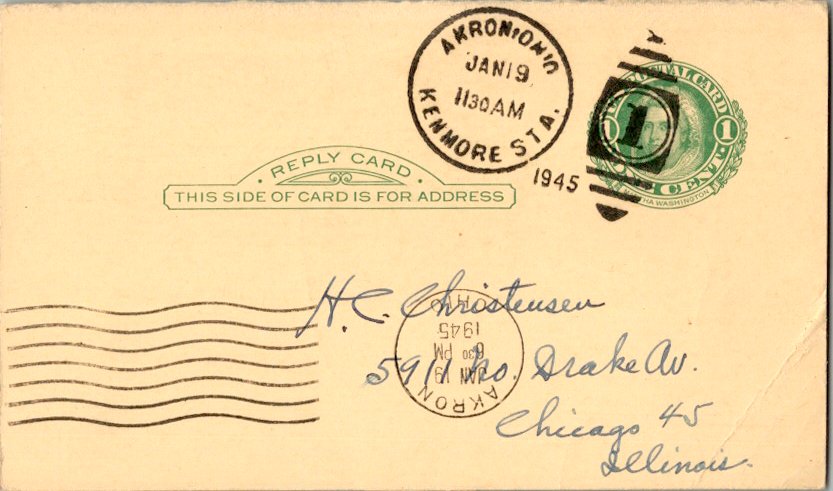 AKRON, OHIO
JAN 19
1130 AM
KENMORE STA.
1945
1
POSTAL CARD
1 1
ONE CENT
MARTHA WASHINGTON
REPLY CARD
THIS SIDE OF CARD IS FOR ADDRESS
H. C. Christensen
5911 No. Drake Av.
Chicago 45
Illinois.
AKRON
JAN 19
6 30 PM
1945
OHIO